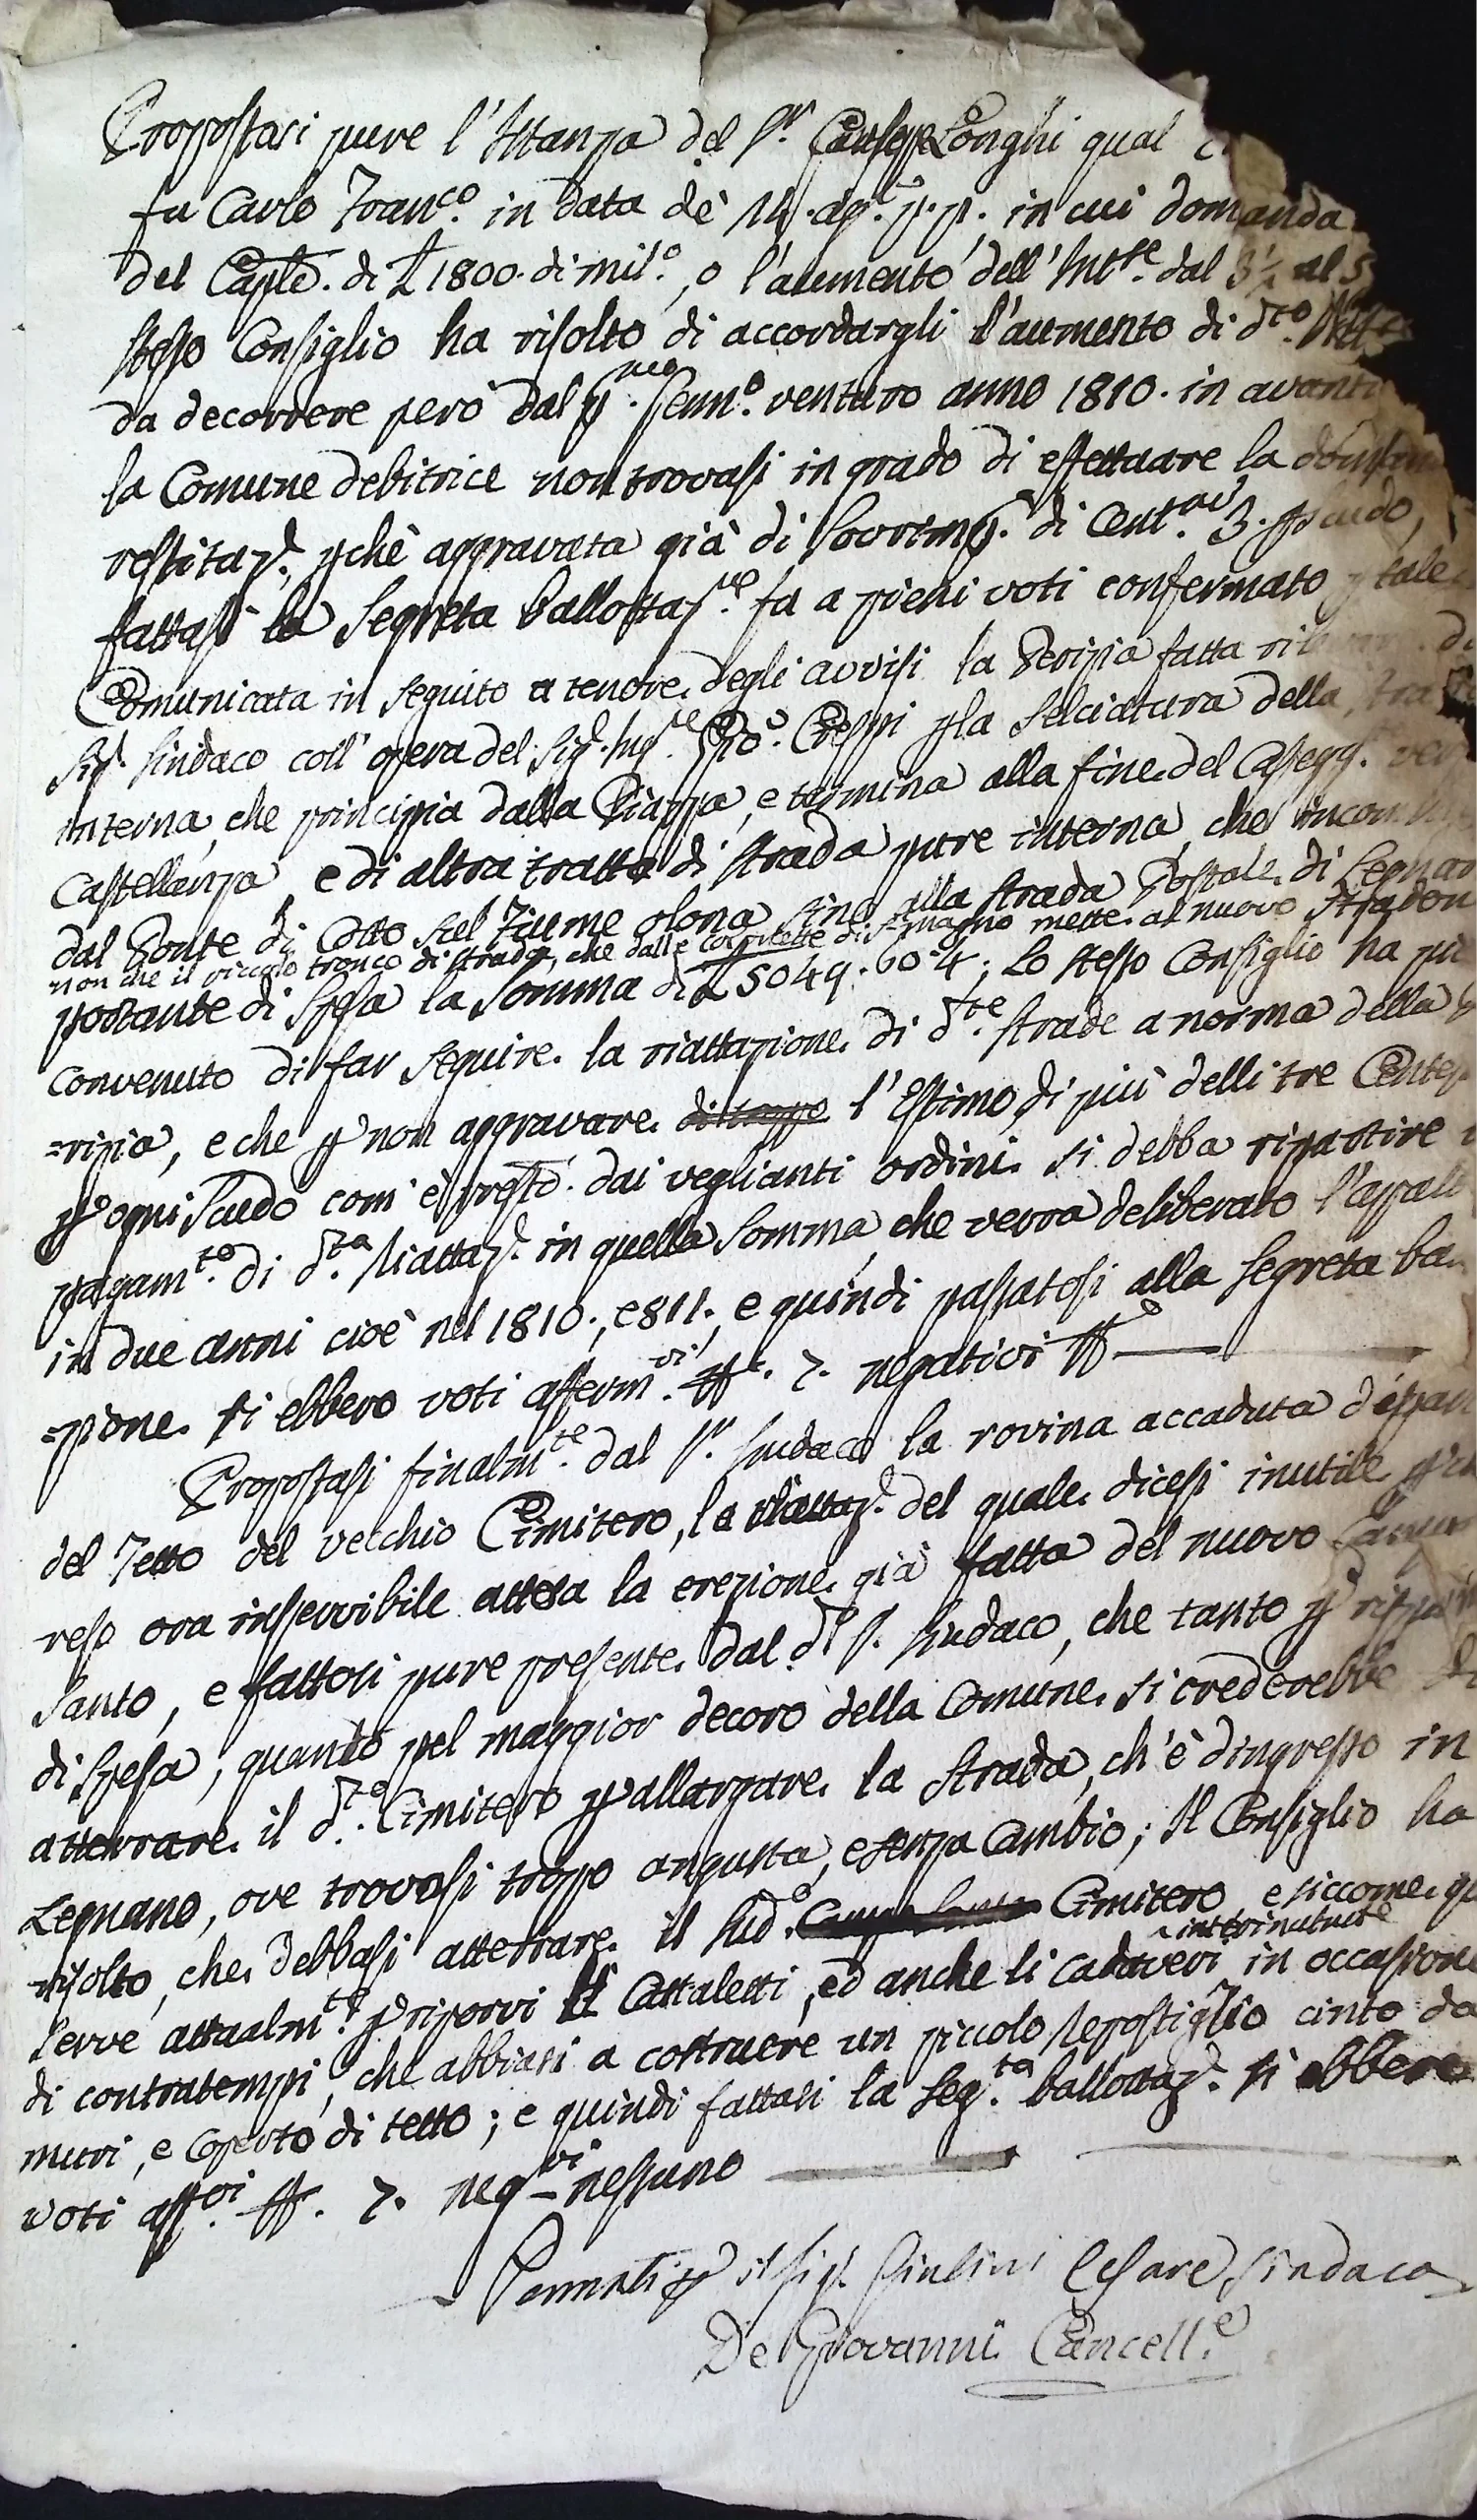 Propostasi pure l'Istanza del Sr. Giuseppe Longhi qual
fu Carlo Franco. in data dè 14. ag. p. p. in cui domanda
del Caple. di £ 1800. di milo., o l'aumento dell'Intse. dal 3½ al 5
stesso Consiglio ha risolto di accordargli l'aumento di dto.
da decorrere però dal pmo. Genno. venturo anno 1810. in avanti
la Comune debitrice non trovasi in grado di effettuare la
restituz., pchè aggravata già di Sovrimp. di Centmi. 3. p scudo,
fattasi la Segreta ballottazne. fu a pieni voti confermato p tale
Comunicata in seguito a tenore degli avvisi la Perizia fatta
Sig. Sindaco coll'opera del Sig. Inge. Gio. Crespi p la selciatura della
interna, che principia dalla Piazza, e termina alla fine del Casegg.
Castellanza, e di altra tratta di strada pure interna, che
dal Ponte di Cotto sul Fiume olona sino alla strada Postale di Legnano
non che il piccolo tronco di strada, che dalle di S. magno mette al nuovo Stradon
portante di spesa la Somma di £ 5049. 60. 4; Lo stesso Consiglio ha
convenuto di far seguire la riattazione di dte. strade a norma della
=rizia, e che p non aggravare di troppo l'Estimo di più delli tre
p ogni Scudo com'è presto. dai veglianti ordini si debba ripartire
pagamto. di dta. Riattaz. in quella Somma, che verrà deliberato l'
in due anni cioè nel 1810., e 811., e quindi passatosi alla segreta
=zione si ebbero voti affermvi. No. 7. negativi No.
Propostasi finalmte. dal Sr. Sindaco la rovina accaduta
del Tetto del vecchio Cimitero, la riattaz. del quale dicesi inutile
reso ora inservibile attesa la erezione già fatta del nuovo
Santo, e fattosi pure presente dal do. S. Sindaco, che tanto p
di spesa, quanto pel maggior decoro della Comune si crederebbe di
atterrare il dto. Cimitero p allargare la strada, ch'è d'ingresso in
Legnano, ove trovasi troppo angusta, e senza Cambio; Il Consiglio ha
risolto, che debbasi atterrare il sudo. Campo Santo Cimitero, e siccome
interinalmte
serve attualmte. p riporvi li Cattaletti, ed anche li cadaveri in occasione
di contratempi, che abbiasi a costruere un piccolo Repostiglio cinto da
muri, e coperto di tetto; e quindi fattasi la segta. ballottaz. si ebbero
voti affvi. No. 7. negvi nessuno
Permati p il Sig. Giulini Cesare Sindaco
De Giovanni Cancelle.